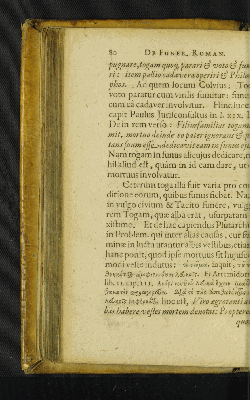 80 DE FUNER. ROMAN.
pugnare, togam quoq, parari & voto & fune-
ri: item pallio cadavera operiri & Philo
phos. Ac quem locum Colvius: To
voto paratur cum virilis sumitur: funeri
cum eâ cadaver involvitur. Hinc luce
capit Paulus Jurisconsultus in l. XIX.
De in rem verso: Filiusfamilias togam
mit, mortuo deinde eo pater ignorans & p
tans suam esse dedicavit eam in funus
Nam togam in funus alicujus dedicare, n
hil aliud est, quàm in id eam dare, ut
mortuus involvatur.
Ceterum toga illa fuit varia pro con
ditione eorum, quibus funus fiebat. Na
in vulgo civium & Tacito funere, vulga
rem Togam, quæ alba erat, usurpatam
xistimo. Et de hac capiendus Plutarchus
in Problem. qui inter alias causas, cur fœ
minæ in luctu utantur albis vestibus, etiam
hanc ponit, quod ipse mortuus sit hujus
modi veste indutus: inquit,
Et Artemidor
lib. II. cap. III.
huc est, Viro ægrotanti al
bas habere vestes mortem denotat: Propterea
quòd